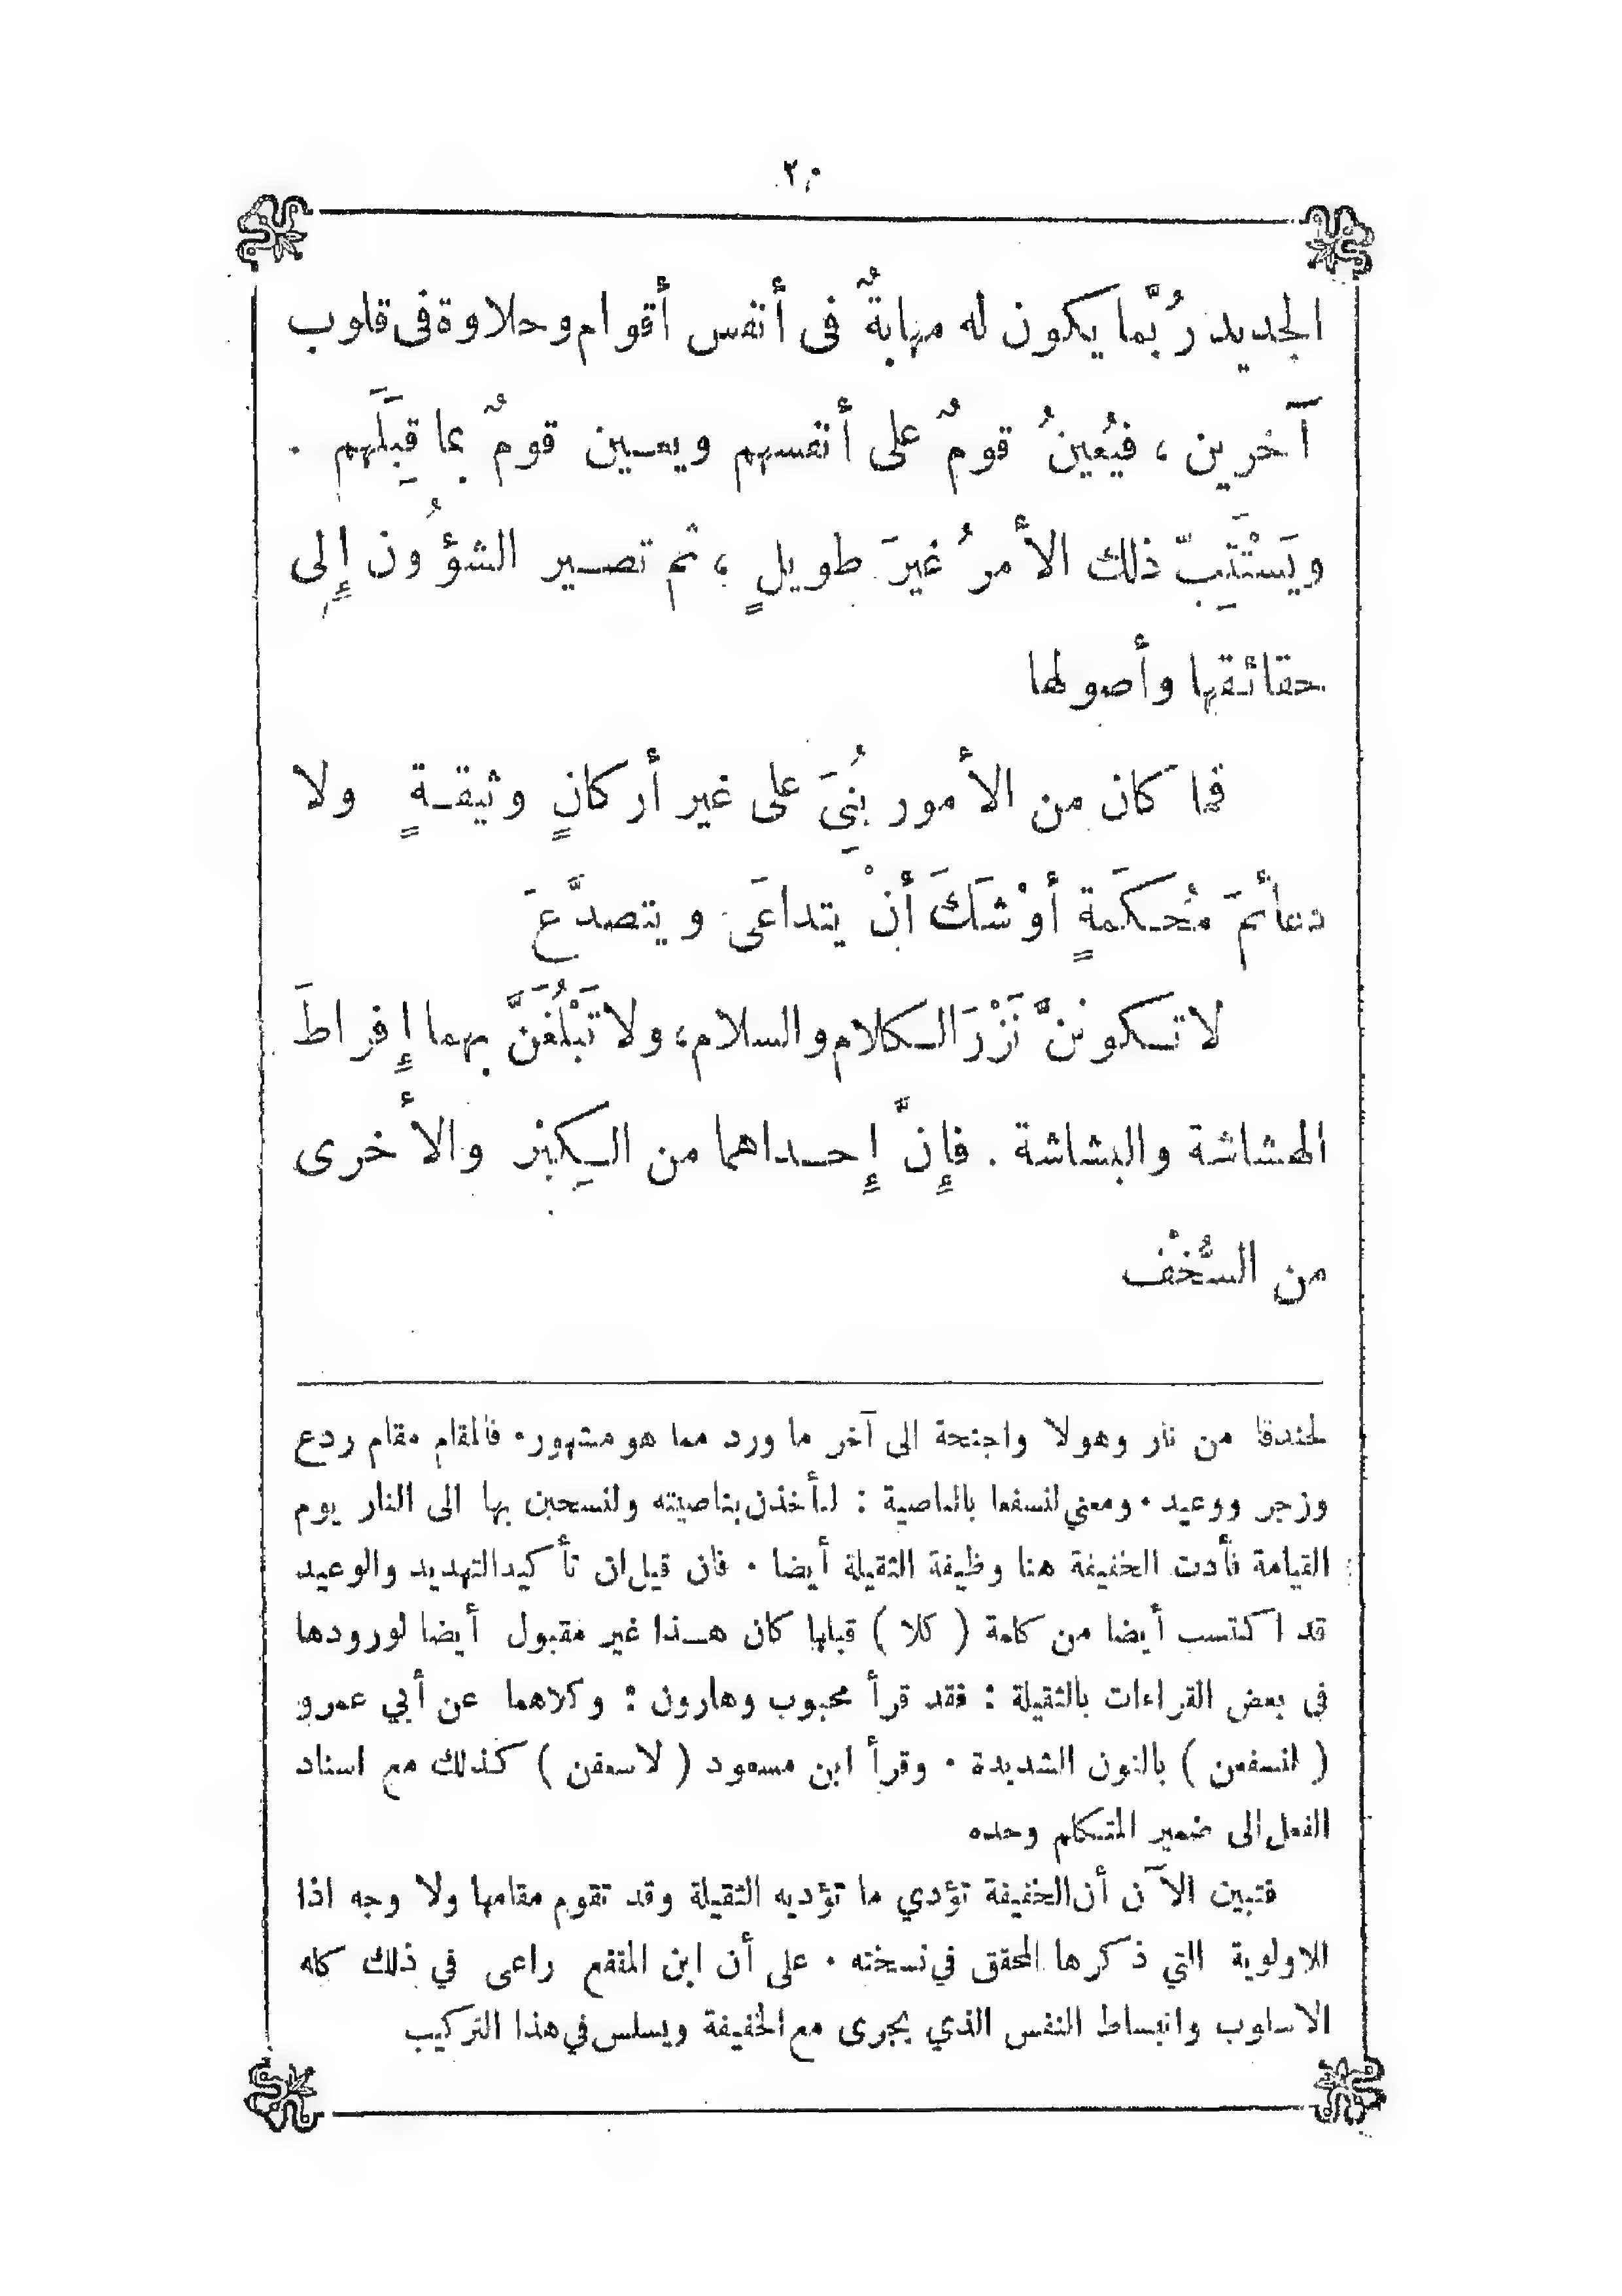 ٢٠
الجديد رُبَّما يكون له مهابةٌ فى أنفس أقوام وحلاوة فى قلوب
آخرين ، فيُعينُ قومٌ على أنفسهم ويعـين قومٌ بما قِبَلَهم .
ويَسْتَتِبّ ذلك الأمرُ غيرَ طويلٍ ، ثم تصـير الشؤُون إلى
حقائقها وأصولها
فما كان من الأمور بُنِيَ على غير أركانٍ وثيقـةٍ ولا
دعائمَ مُحـكَمةٍ أوْشَكَ أنْ يتداعَى ويتصدَّعَ
لا تـكوننَّ نَزْرَ الـكلام والسلام ، ولا تَبْلُغَنَّ بهما إفراطَ
الهشاشة والبشاشة . فإنَّ إحـداهما من الـكِبْر والأخرى
من السُّخْف
لخندقا من نار وهولا واجنحة الى آخر ما ورد مما هو مشهور . فالمقام مقام ردع
وزجر ووعيد . ومعني لنسفعا بالناصية : لنأخذن بناصيته ولنسحبن بها الى النار يوم
القيامة فأدت الخفيفة هنا وظيفة الثقيلة أيضا . فان قيل ان تأكيد التهديد والوعيد
قد اكتسب أيضا من كلمة ( كلا ) قبلها كان هـذا غير مقبول أيضا لورودها
فى بعض القراءات بالثقيلة : فقد قرأ محبوب وهارون : وكلاهما عن أبي عمرو
( لنسفعن ) بالنون الشديدة . وقرأ ابن مسعود ( لاسعفن ) كذلك مع اسناد
الفعل الى ضمير المتـكلم وحده
فتبين الآن أن الخفيفة تؤدي ما تؤديه الثقيلة وقد تقوم مقامها ولا وجه اذا
للاولوية التي ذكرها المحقق في نسخته . على أن ابن المقفع راعى في ذلك كله
الاسلوب وانبساط النفس الذي يجرى مع الخفيفة ويسلس في هذا التركيب